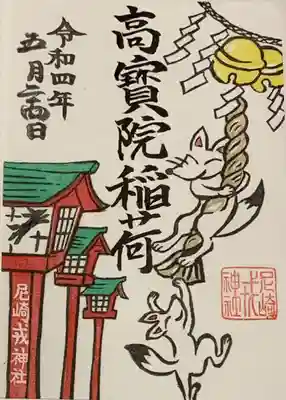 高寶院稲荷
令和四年
五月二四日
尼崎戎神社
尼崎
戎
神社